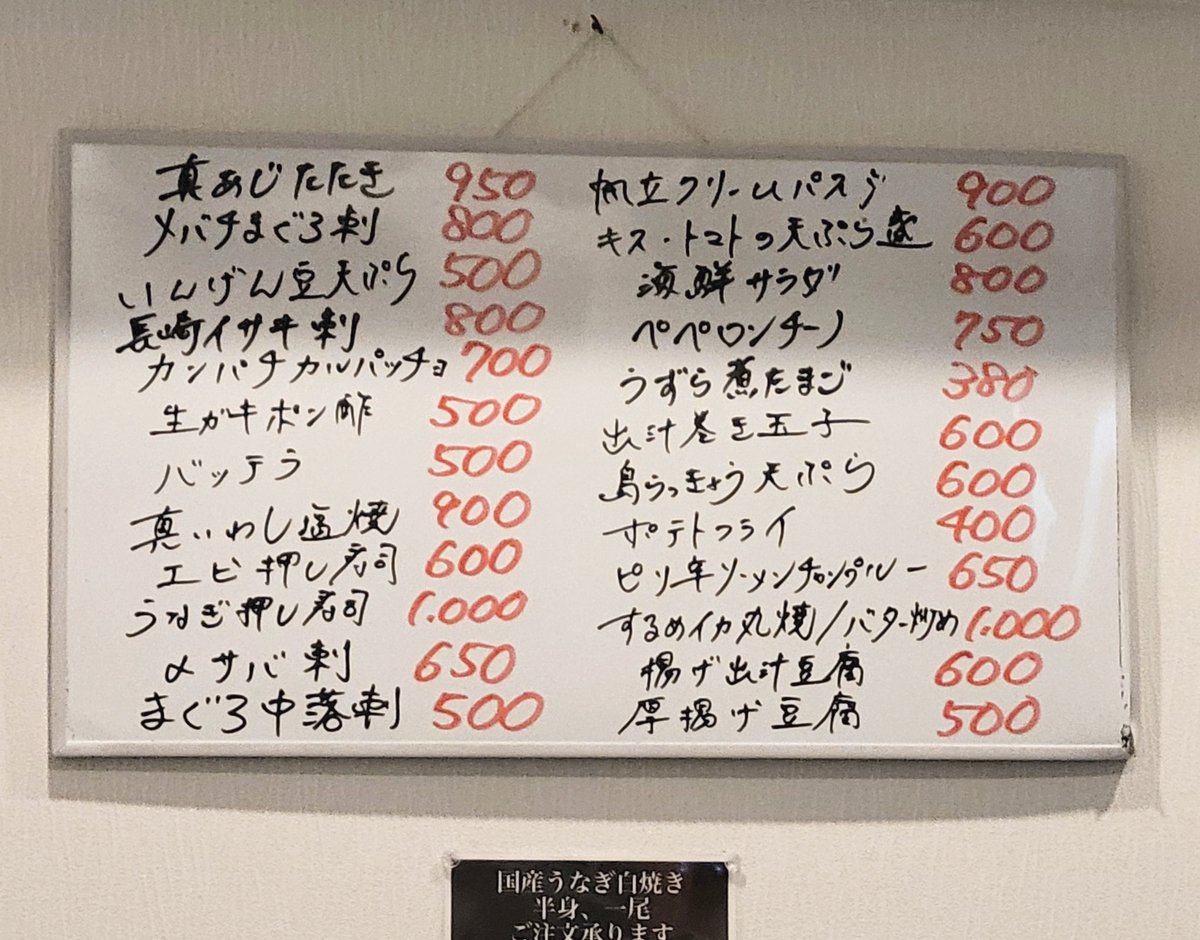 真あじたたき 950
メバチまぐろ刺 800
いんげん豆天ぷら 500
長崎イサキ刺 800
カンパチカルパッチョ 700
生ガキポン酢 500
バッテラ 500
真いわし塩焼 900
エビ押し寿司 600
うなぎ押し寿司 1.000
〆サバ刺 650
まぐろ中落刺 500
帆立クリームパスタ 900
キス・トマトの天ぷら盛 600
海鮮サラダ 800
ペペロンチーノ 750
うずら煮たまご 380
出汁巻き玉子 600
島らっきょう天ぷら 600
ポテトフライ 400
ピリ辛ソーメンチャンプルー 650
するめイカ丸焼/バター炒め 1.000
揚げ出汁豆腐 600
厚揚げ豆腐 500
国産うなぎ白焼き
半身、一尾
ご注文承ります